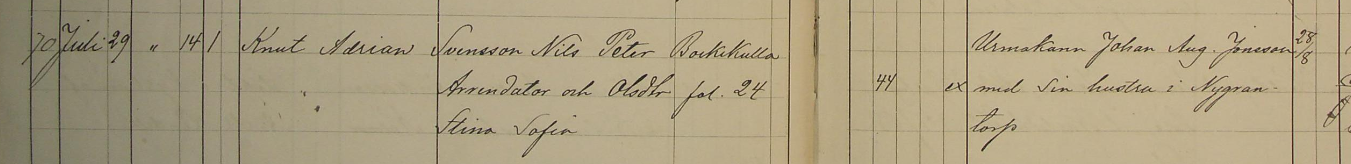 70 Juli 29 " 14 1 Knut Adrian Svensson Nils Peter Bockekulla Urmakann Johan Aug. Jonsson 28/8
" " Arrendator och Olsdtr fol. 24 44 ex med sin hustru i Nygran-
Stina Sofia torp